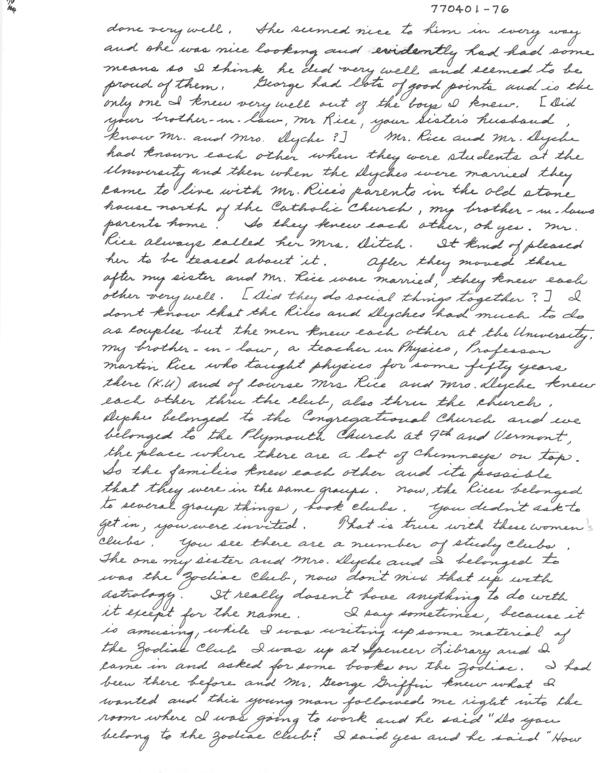 770401-76
done very well. She seemed nice to him in every way
and she was nice looking and evidently had had some
means so I think he did very well and seemed to be
proud of them. George had lots of good points and is the
only one I knew very well out of the boys I knew. [Did
your brother-in-law, Mr. Rice, your sister's husband,
know Mr. and Mrs. Dyche?] Mr. Rice and Mr. Dyche
had known each other when they were students at the
University and then when the Dyches were married they
came to live with Mr. Rice's parents in the old stone
house north of the Catholic Church, my brother-in-laws
parents home. So they knew each other, oh yes. Mr.
Rice always called her Mrs. Ditch. It kind of pleased
her to be teased about it. After they moved there
after my sister and Mr. Rice were married, they knew each
other very well. [Did they do social things together?] I
dont know that the Rices and Dyches had much to do
as couples but the men knew each other at the University.
My brother-in-law, a teacher in Physics, Professor
Martin Rice who taught physics for some fifty years
there (K.U) and of course Mrs Rice and Mrs. Dyche knew
each other thru the club, also thru the church.
Dyches belonged to the Congregational Church and we
belonged to the Plymouth Church at 9th and Vermont,
the place where there are a lot of chimneys on top.
So the families knew each other and its possible
that they were in the same groups. Now, the Rices belonged
to several group things, book clubs. You didn't ask to
get in, you were invited. That is true with these women's
clubs. You see there are a number of study clubs.
The one my sister and Mrs. Dyche and I belonged to
was the Zodiac Club, now don't mix that up with
astrology. It really dosen't have anything to do with
it except for the name. I say sometimes, because it
is amusing, while I was writing up some material of
the Zodiac Club I was up at Spencer Library and I
came in and asked for some books on the Zodiac. I had
been there before and Mr. George Griffin knew what I
wanted and this young man followed me right into the
room where I was going to work and he said "Do you
belong to the Zodiac Club?" I said yes and he said "How